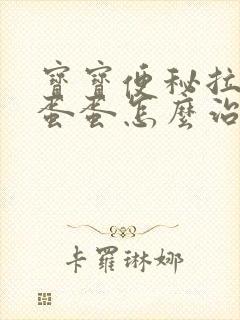 寶寶便秘拉
蛋蛋怎麼治
卡羅琳娜